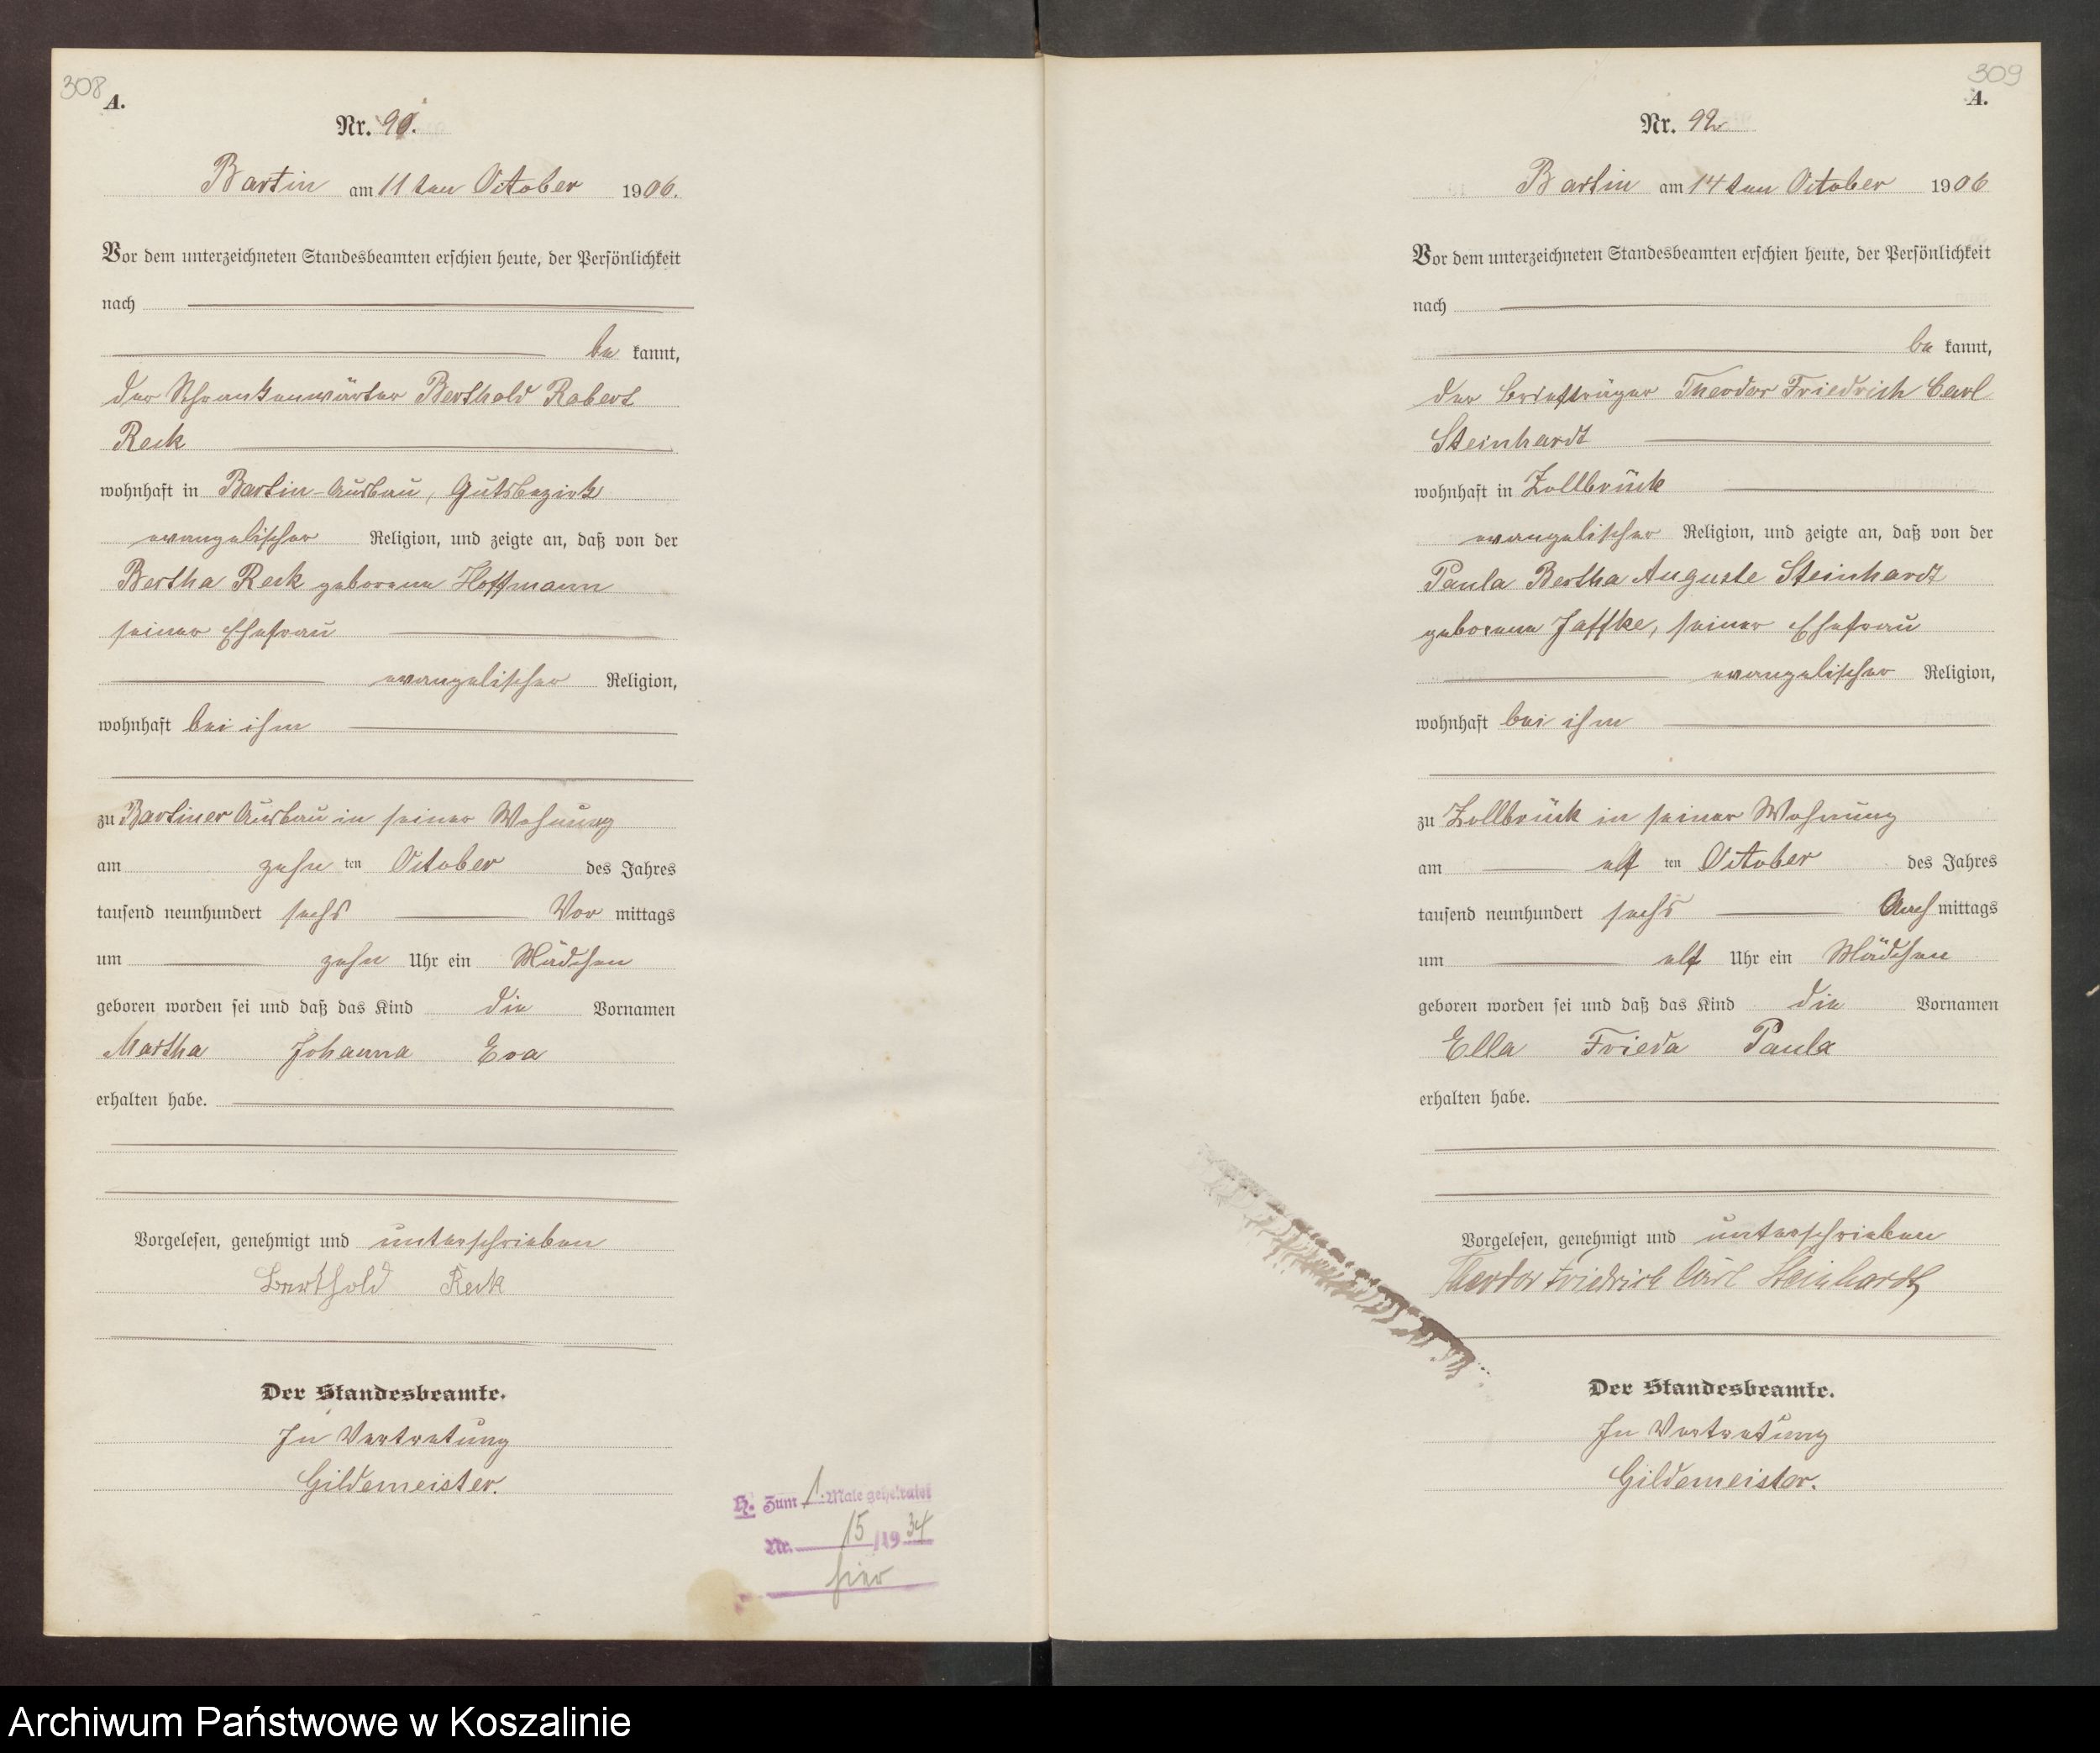 308
A.
Nr. 91.
Bartin am 11 ten October 1906.
Vor dem unterzeichneten Standesbeamten erschien heute, der Persönlichkeit
nach
be kannt,
der Schrankenwärter Berthold Robert
Reck
wohnhaft in Bartin-Ausbau, Gutsbezirk
evangelischer Religion, und zeigte an, daß von der
Bertha Reck geborene Hoffmann
seiner Ehefrau
evangelischer Religion,
wohnhaft bei ihm
zu Bartiner Ausbau in seiner Wohnung
am zehn ten October des Jahres
tausend neunhundert sechs Vor mittags
um zehn Uhr ein Mädchen
geboren worden sei und daß das Kind die Vornamen
Martha Johanna Eva
erhalten habe.
Vorgelesen, genehmigt und unterschrieben
Berthold Reck
Der Standesbeamte.
In Vertretung
Gildemeister.
H. Zum 1. Male geheiratet
Nr. 15/1934
hier
309
A.
Nr. 92
Bartin am 14 ten October 1906
Vor dem unterzeichneten Standesbeamten erschien heute, der Persönlichkeit
nach
be kannt,
der Briefträger Theodor Friedrich Carl
Steinhardt
wohnhaft in Zollbrück
evangelischer Religion, und zeigte an, daß von der
Paula Bertha Auguste Steinhardt
geborene Jaffke, seiner Ehefrau
evangelischer Religion,
wohnhaft bei ihm
zu Zollbrück in seiner Wohnung
am elf ten October des Jahres
tausend neunhundert sechs Nach mittags
um elf Uhr ein Mädchen
geboren worden sei und daß das Kind die Vornamen
Ella Frieda Paula
erhalten habe.
Vorgelesen, genehmigt und unterschrieben
Theodor Friedrich Carl Steinhardt
Der Standesbeamte.
In Vertretung
Gildemeister.
Archiwum Państwowe w Koszalinie